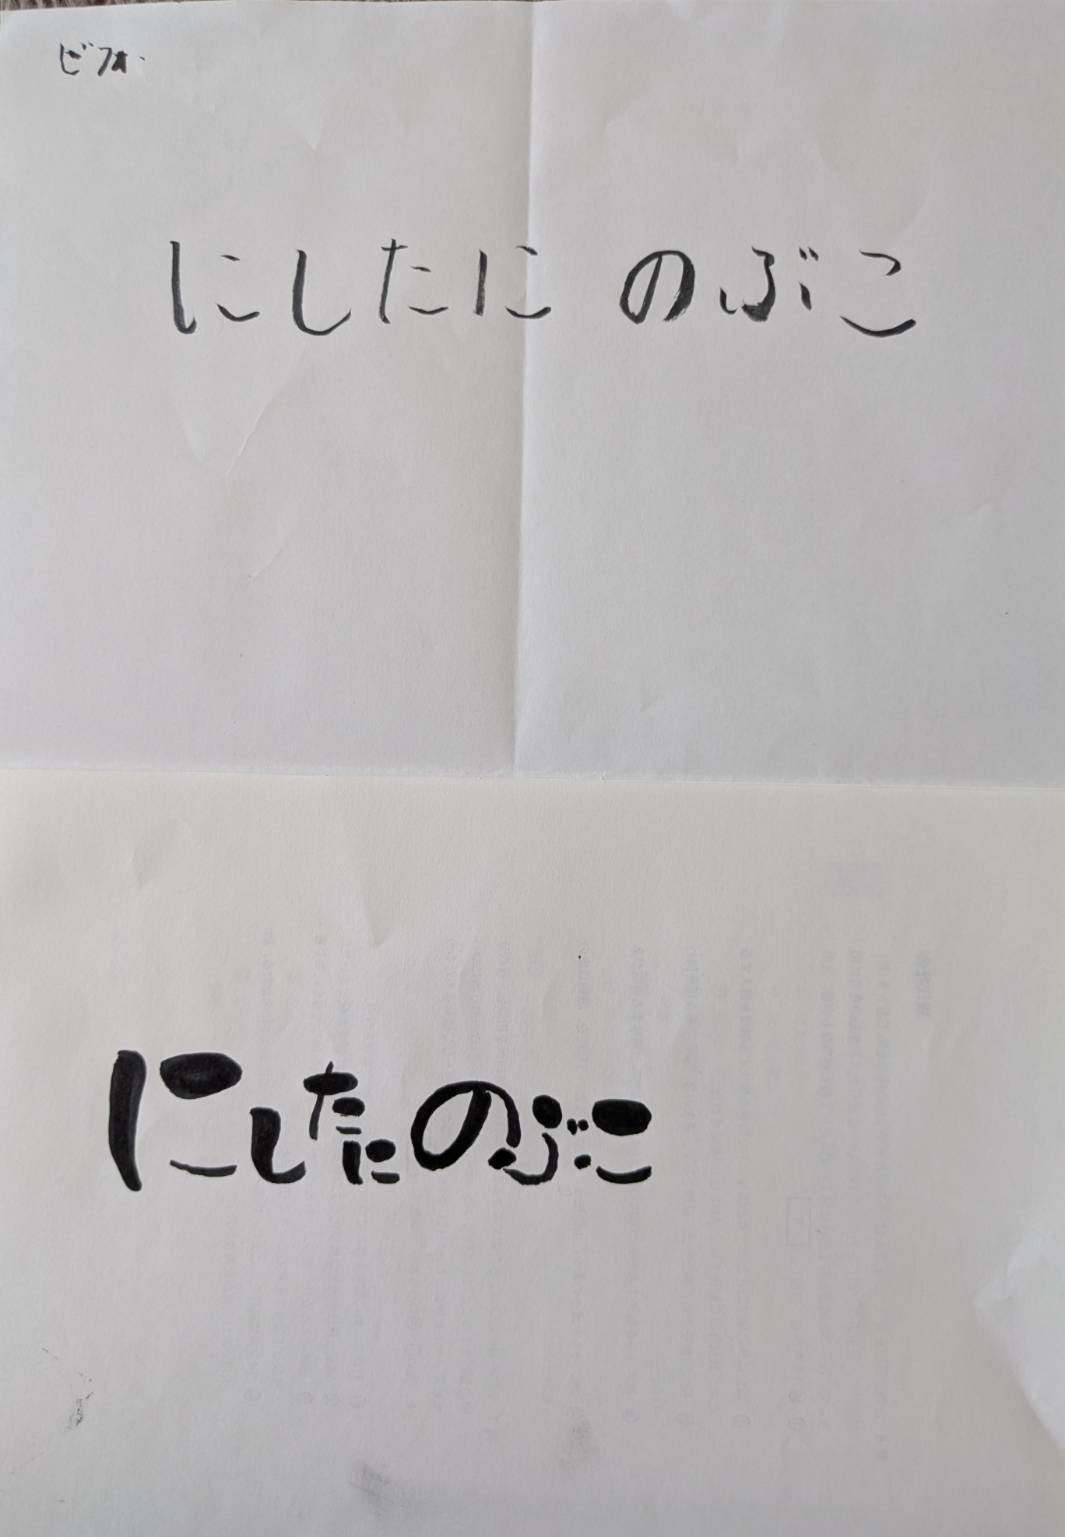 ビフォー
にしたに のぶこ
にしたにのぶこ